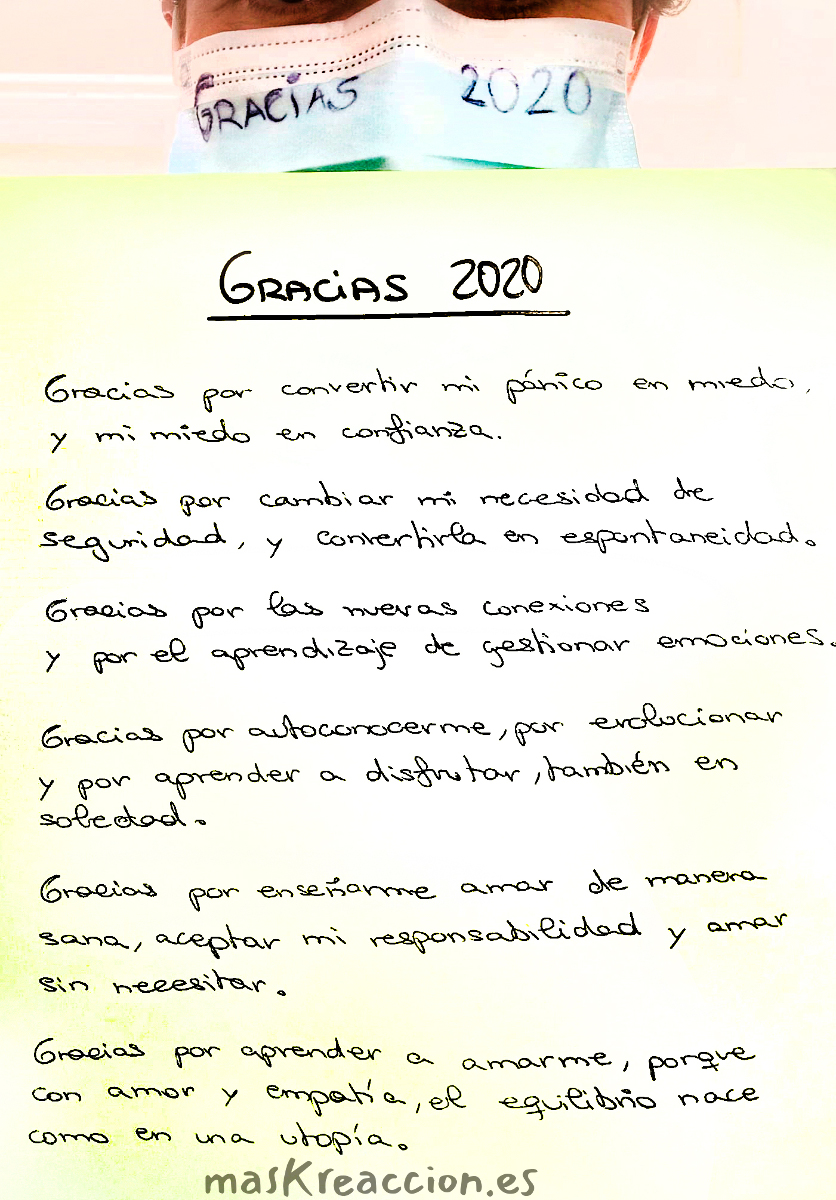 GRACIAS 2020
GRACIAS 2020
Gracias por convertir mi pánico en miedo,
y mi miedo en confianza.
Gracias por cambiar mi necesidad de
seguridad, y convertirla en espontaneidad.
Gracias por las nuevas conexiones
y por el aprendizaje de gestionar emociones.
Gracias por autoconocerme, por evolucionar
y por aprender a disfrutar, también en
soledad.
Gracias por enseñarme amar de manera
sana, aceptar mi responsabilidad y amar
sin necesitar.
Gracias por aprender a amarme, porque
con amor y empatía, el equilibrio nace
como en una utopía.
masKreaccion.es